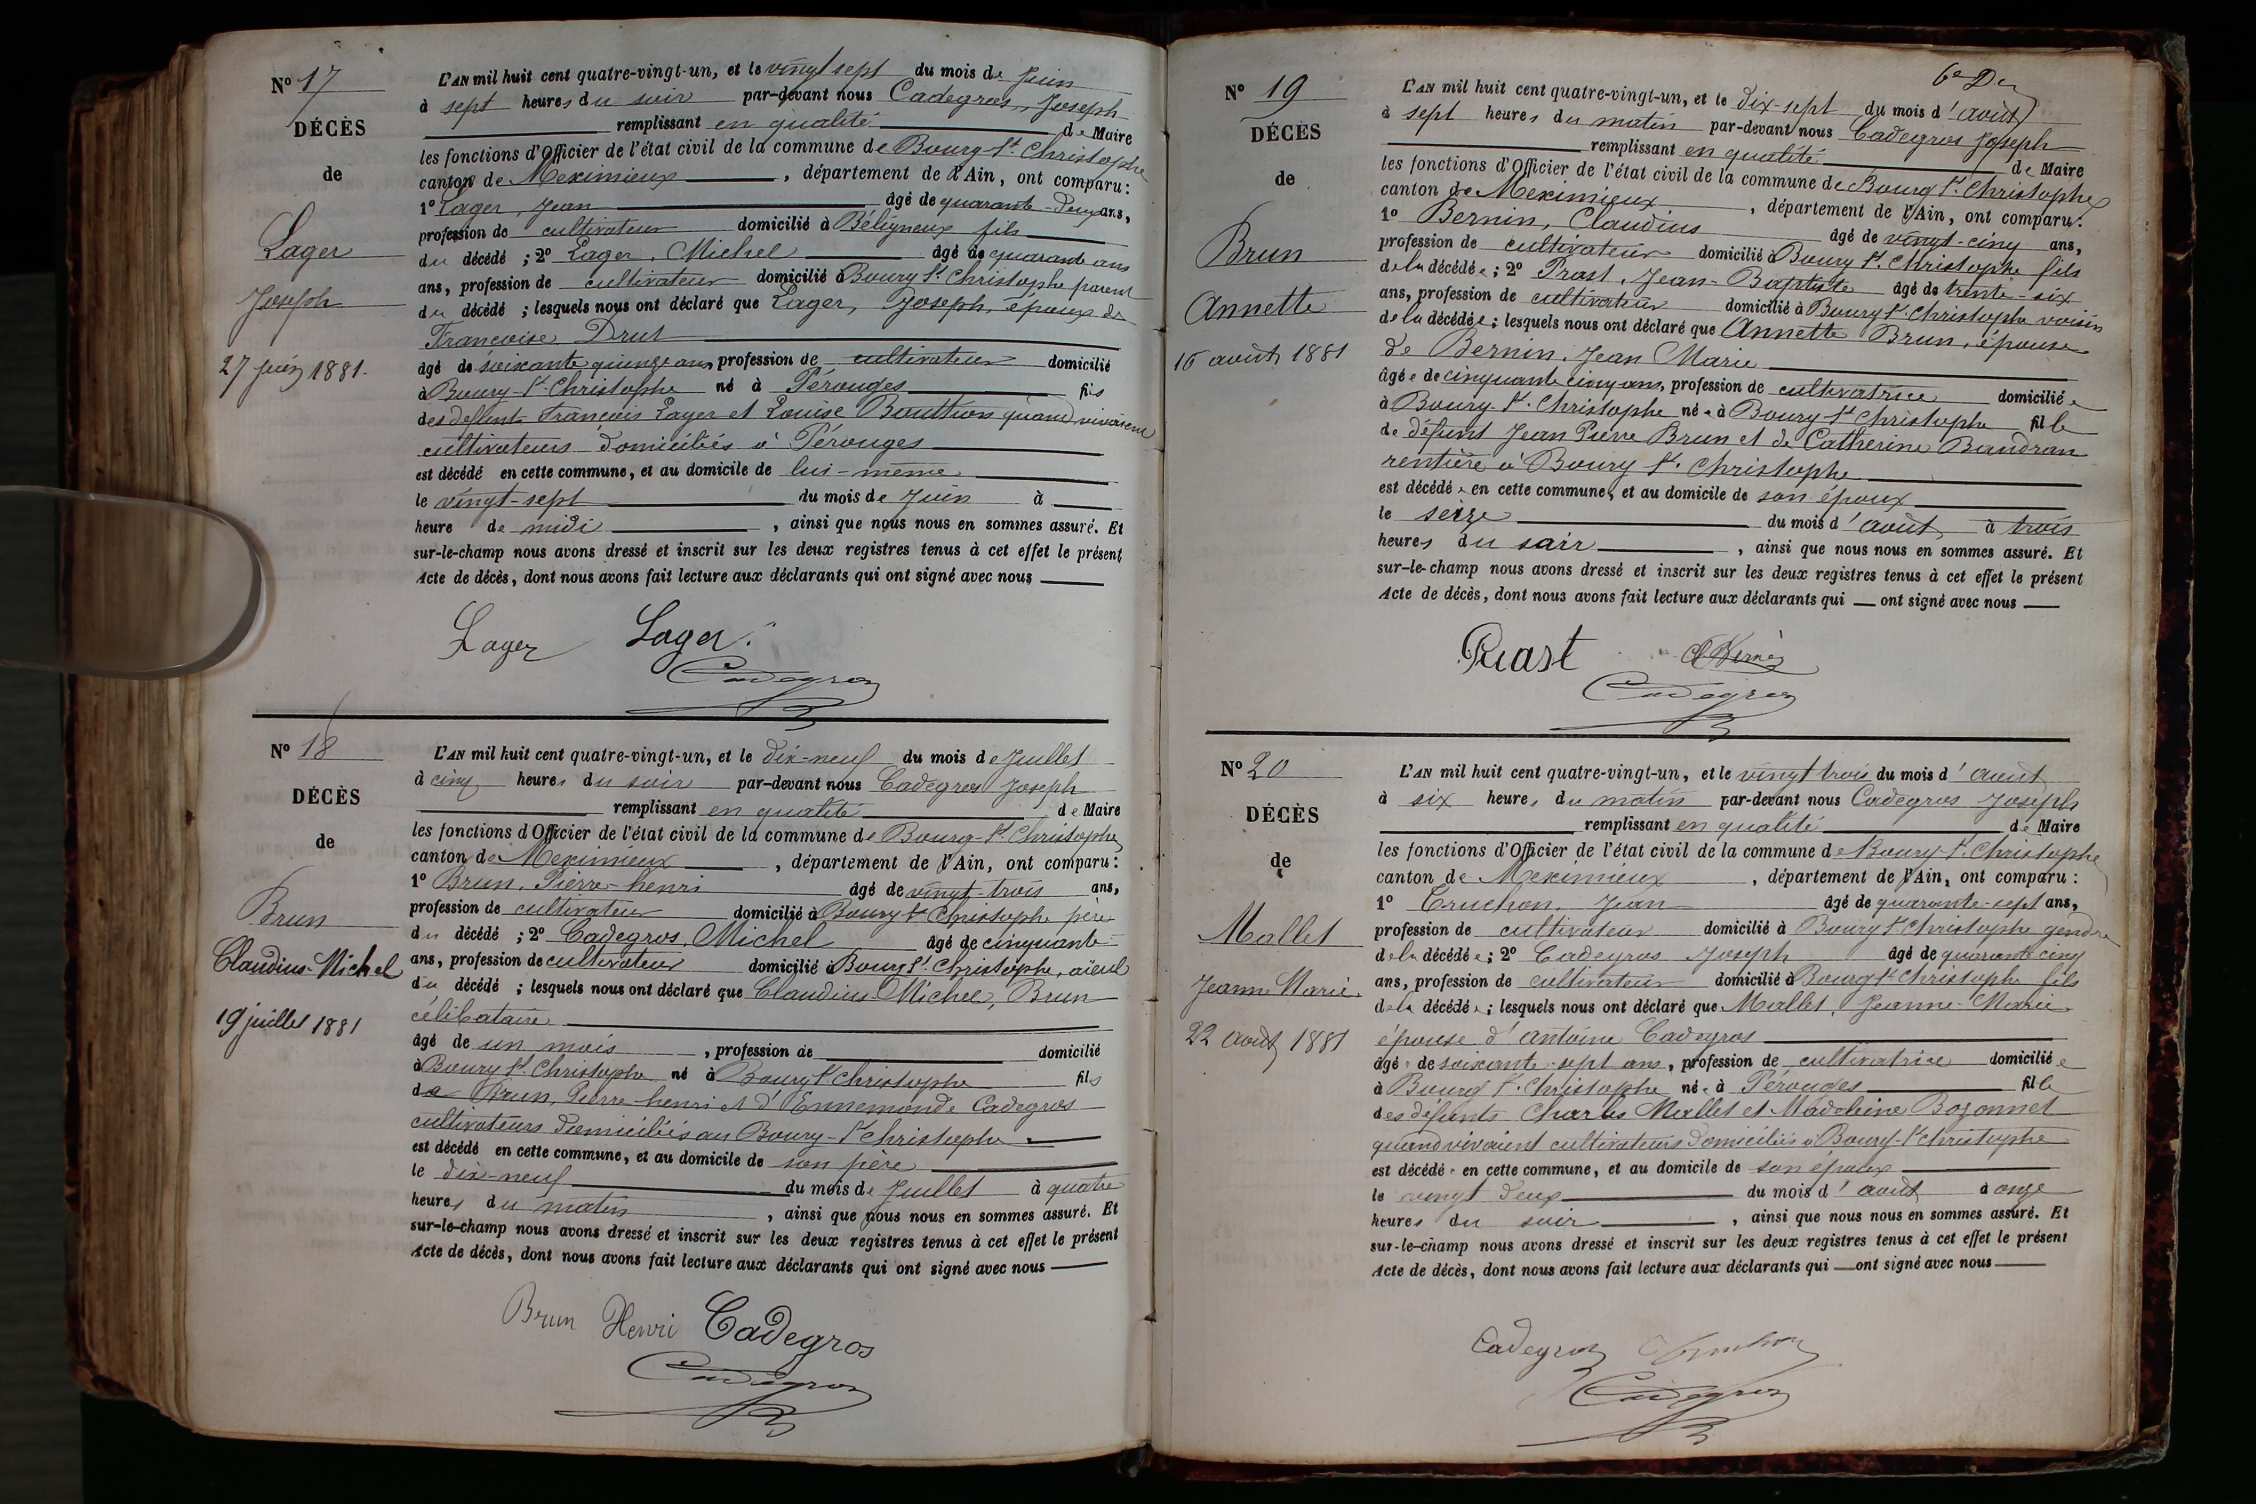 Nº 17
DÉCÈS
de
Lager
Joseph
27 juin 1881.
L'AN mil huit cent quatre-vingt-un, et le vingt sept du mois de Juin
à sept heures du soir par-devant nous Cadegros, Joseph
remplissant en qualité de Maire
les fonctions d'Officier de l'état civil de la commune de Bourg-St Christophe
canton de Meximieux, département de l'Ain, ont comparu:
1º Lager, Jean âgé de quarante-deux ans,
profession de cultivateur domicilié à Béligneux fils
du décédé ; 2º Lager, Michel âgé de quarante ans
ans, profession de cultivateur domicilié à Bourg St Christophe parent
du décédé ; lesquels nous ont déclaré que Lager, Joseph, époux de
Francoise Drut
âgé de soixante quinze ans, profession de cultivateur domicilié
à Bourg-St Christophe né à Pérouges fils
des defunts Francois Lager et Louise Bouthion quand vivaient
cultivateurs domiciliés à Pérouges
est décédé en cette commune, et au domicile de lui-même
le vingt-sept du mois de Juin à
heure de midi, ainsi que nous nous en sommes assuré. Et
sur-le-champ nous avons dressé et inscrit sur les deux registres tenus à cet effet le présent
Acte de décès, dont nous avons fait lecture aux déclarants qui ont signé avec nous
Lager Lager.
Cadegros
Nº 18
DÉCÈS
de
Brun
Claudius-Michel
19 juillet 1881
L'AN mil huit cent quatre-vingt-un, et le dix-neuf du mois de Juillet
à cinq heures du soir par-devant nous Cadegros Joseph
remplissant en qualité de Maire
les fonctions d'Officier de l'état civil de la commune de Bourg-St Christophe
canton de Meximieux, département de l'Ain, ont comparu:
1º Brun, Pierre-henri âgé de vingt-trois ans,
profession de cultivateur domicilié à Bourg St Christophe père
du décédé ; 2º Cadegros, Michel âgé de cinquante-
ans, profession de cultivateur domicilié à Bourg St Christophe, aïeul
du décédé ; lesquels nous ont déclaré que Claudius-Michel, Brun
célibataire
âgé de un mois, profession de domicilié
à Bourg St Christophe né à Bourg St Christophe fils
de Brun, Pierre-henri et d'Ennemonde Cadegros
cultivateurs domiciliés au Bourg-St Christophe
est décédé en cette commune, et au domicile de son père
le dix-neuf du mois de Juillet à quatre
heures du matin, ainsi que nous nous en sommes assuré. Et
sur-le-champ nous avons dressé et inscrit sur les deux registres tenus à cet effet le présent
Acte de décès, dont nous avons fait lecture aux déclarants qui ont signé avec nous
Brun Henri Cadegros
Cadegros
6e
Nº 19
DÉCÈS
de
Brun
Annette
16 août 1881
L'AN mil huit cent quatre-vingt-un, et le dix-sept du mois d'août
à sept heures du matin par-devant nous Cadegros Joseph
remplissant en qualité de Maire
les fonctions d'Officier de l'état civil de la commune de Bourg St Christophe
canton de Meximieux, département de l'Ain, ont comparu:
1º Bernin, Claudius âgé de vingt-cinq ans,
profession de cultivateur domicilié à Bourg St. Christophe fils
de la décédée ; 2º Prast, Jean-Baptiste âgé de trente-six
ans, profession de cultivateur domicilié à Bourg St. Christophe voisin
de la décédée ; lesquels nous ont déclaré que Annette Brun, épouse
de Bernin, Jean Marie
âgée de cinquante cinq ans, profession de cultivatrice domiciliée
à Bourg-St. Christophe née à Bourg St Christophe fille
de défunt Jean Pierre Brun et de Catherine Baudran
rentière à Bourg St. Christophe
est décédée en cette commune, et au domicile de son époux
le seize du mois d'août à trois
heures du soir, ainsi que nous nous en sommes assuré. Et
sur-le-champ nous avons dressé et inscrit sur les deux registres tenus à cet effet le présent
Acte de décès, dont nous avons fait lecture aux déclarants qui ont signé avec nous
Cadegros
Nº 20
DÉCÈS
de
Mallet
Jeanne Marie.
22 août 1881
L'AN mil huit cent quatre-vingt-un, et le vingt trois du mois d'août
à six heures du matin par-devant nous Cadegros Joseph
remplissant en qualité de Maire
les fonctions d'Officier de l'état civil de la commune de Bourg-St. Christophe
canton de Meximieux, département de l'Ain, ont comparu:
1º Truchon, Jean âgé de quarante-sept ans,
profession de cultivateur domicilié à Bourg St Christophe gendre
de la décédée ; 2º Cadegros Joseph âgé de quarante cinq
ans, profession de cultivateur domicilié à Bourg St Christophe fils
de la décédée ; lesquels nous ont déclaré que Mallet, Jeanne-Marie
épouse d'Antoine Cadegros
âgée de soixante-sept ans, profession de cultivatrice domiciliée
à Bourg St. Christophe née à Pérouges fille
des défunts Charles Mallet et Madeleine Bozonnet
quand vivaient cultivateurs domiciliés à Bourg-St Christophe
est décédée en cette commune, et au domicile de son époux
le vingt deux du mois d'août à onze
heures du soir, ainsi que nous nous en sommes assuré. Et
sur-le-champ nous avons dressé et inscrit sur les deux registres tenus à cet effet le présent
Acte de décès, dont nous avons fait lecture aux déclarants qui ont signé avec nous
Cadegros
Cadegros